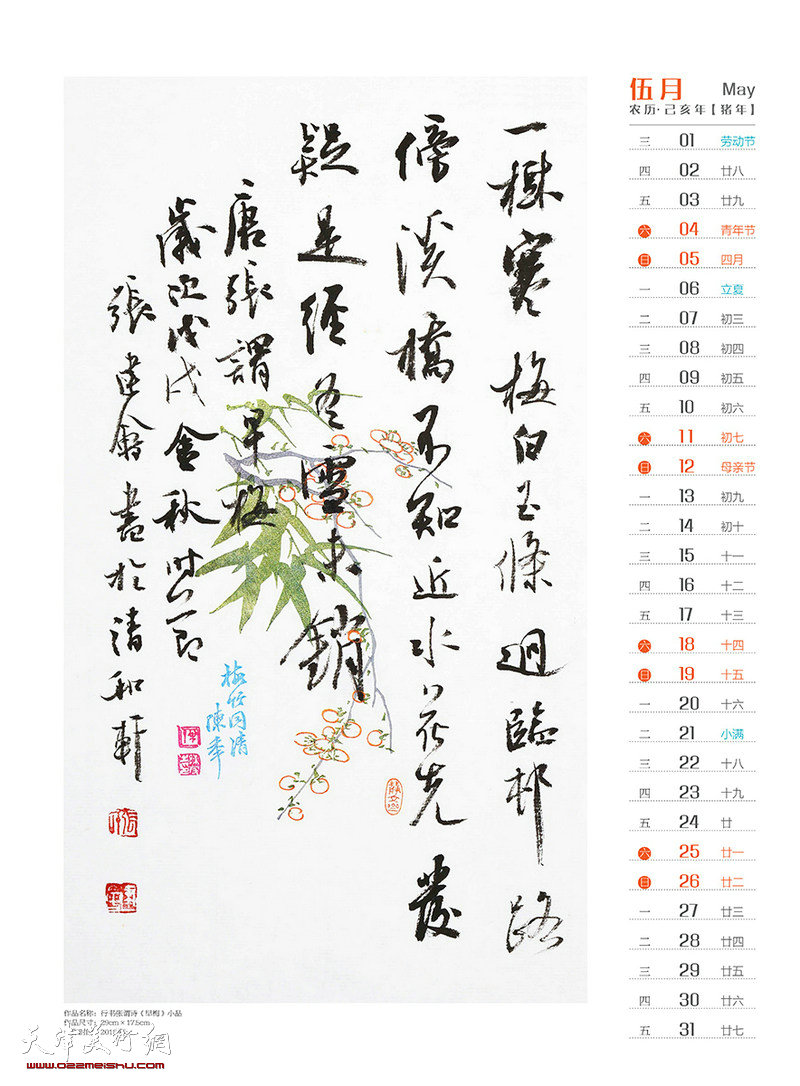 一樹寒梅白玉條迥臨邨路
傍溪橋不知近水花先發
疑是經冬雪未銷
唐張謂早梅
歲次戊戌金秋時節
張建會書於清和軒
梅竹同清
陳年
伍月 May
农历·己亥年【猪年】
三 01 劳动节
四 02 廿八
五 03 廿九
六 04 青年节
日 05 四月
一 06 立夏
二 07 初三
三 08 初四
四 09 初五
五 10 初六
六 11 初七
日 12 母亲节
一 13 初九
二 14 初十
三 15 十一
四 16 十二
五 17 十三
六 18 十四
日 19 十五
一 20 十六
二 21 小满
三 22 十八
四 23 十九
五 24 廿
六 25 廿一
日 26 廿二
一 27 廿三
二 28 廿四
三 29 廿五
四 30 廿六
五 31 廿七
作品名称：行书张谓诗《早梅》小品
作品尺寸：29cm×17.5cm
天津美术網
www.022meishu.com